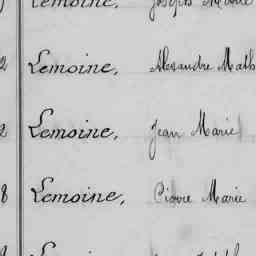 Lemoine, Joseph Marie
2 Lemoine, Alexandre Math
2 Lemoine, Jean Marie
8 Lemoine, Pierre Marie